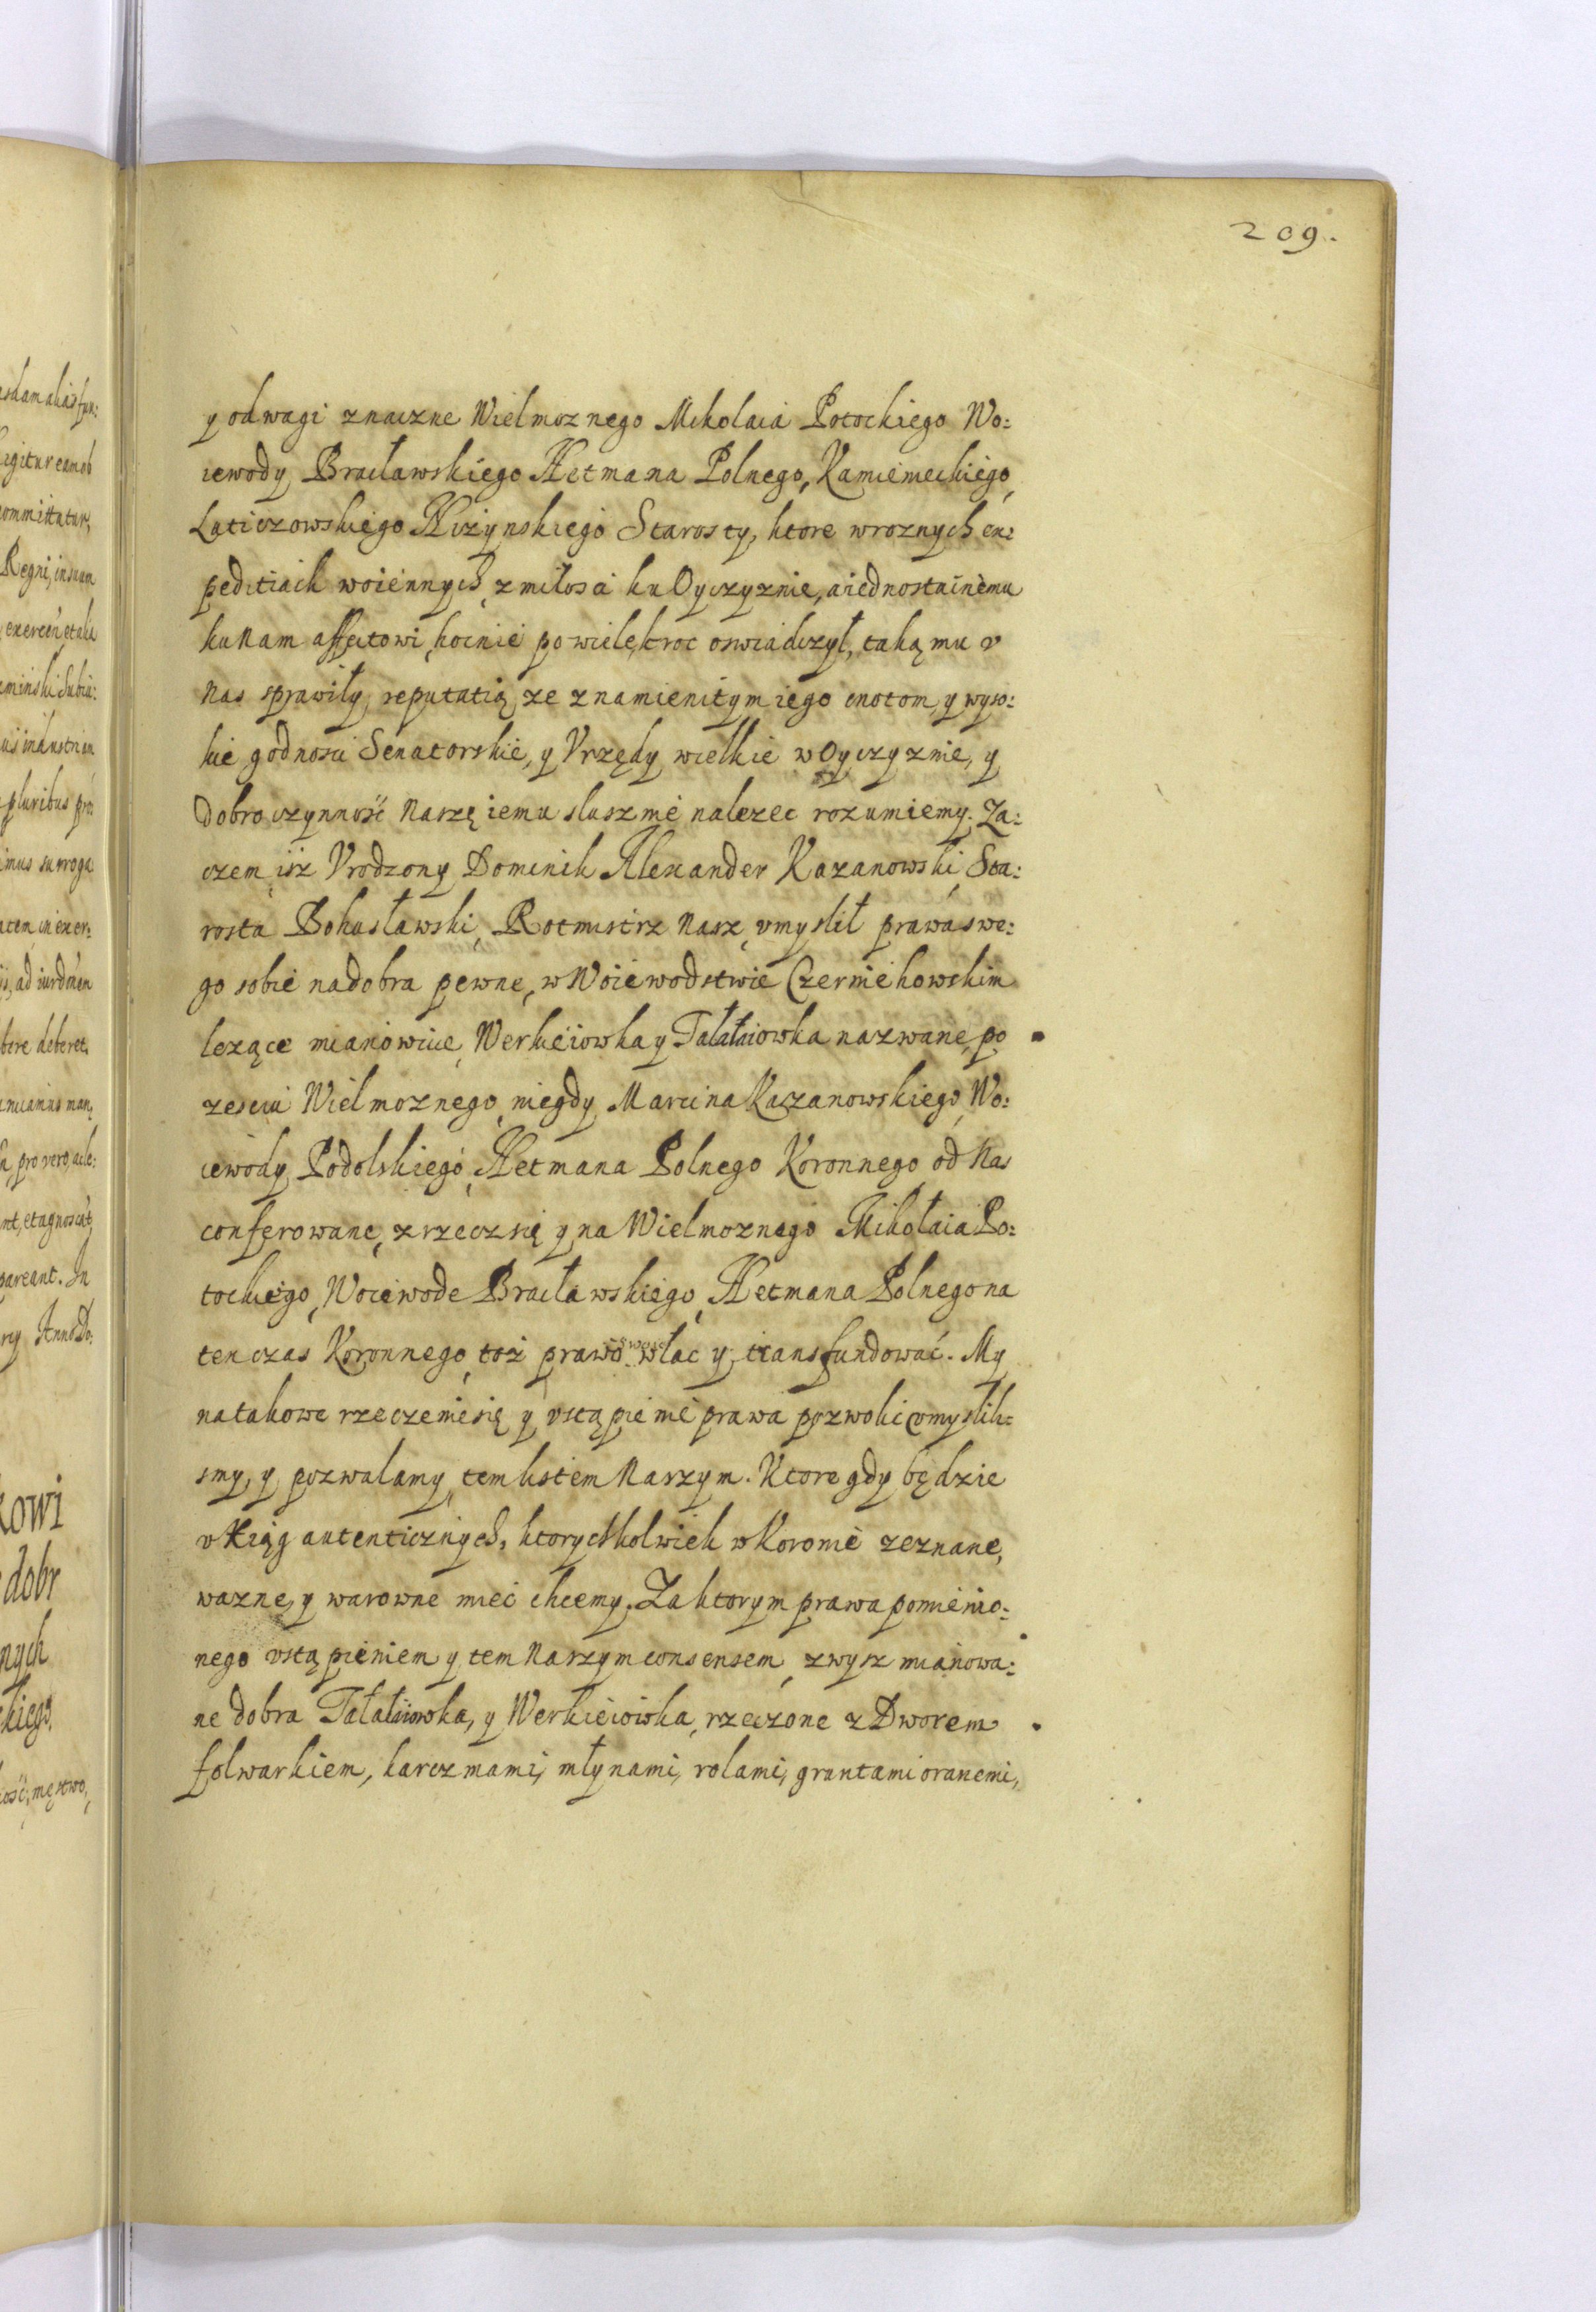 209.
y odwagi znaczne Wielmoznego Mikolaia Potockiego Wo:
iewody Bracławskiego Hetmana Polnego, Kamienieckiego,
Laticzowskiego Nizynskiego Starosty, ktore wroznych ex:
peditiach woiennych, z miłosci ku Oyczyznie, a iednostainemu
ku Nam affectowi, hoinie po wielekroc oswiadczył, taką mu v
Nas sprawiły reputatią, ze znamienitym iego cnotom, y wyso:
kie godnosci Senatorskie, y Vrzędy wielkie w Oyczyznie, y
dobroczynność Naszę iemu slusznie nalezec rozumiemy. Za:
czem isz Vrodzony Dominik Alexander Kazanowski, Sta:
rosta Bohusławski, Rotmistrz Nasz, vmyslił prawa swe:
go sobie na dobra pewne, w Woiewodstwie Czerniehowskim
lezące mianowicie, Werkieiowka y Tałałaiowka nazwane, po
zesciu Wielmoznego niegdy Marcina Kazanowskiego, Wo:
iewody Podolskiego, Hetmana Polnego Koronnego od Nas
conferowane, zrzecz się y na Wielmoznego Mikołaia Po:
tockiego, Woiewode Bracławskiego, Hetmana Polnego na
ten czas Koronnego, toż prawo swoie wlac y transfundować. My
na takowe rzeczenie się y vstąpienie prawa pozwolic vmyslili:
smy, y pozwalamy, tem listem Naszym. Ktore gdy będzie
v Xiąg autenticznych, ktorychkolwiek w Koronie zeznane,
wazne, y warowne mieć chcemy. Za ktorym prawa pomienio:
nego vstąpieniem y tem Naszym consensem, zwysz mianowa:
ne dobra Tałałaiowka, y Werkieiowka, rzeczone z Dworem
folwarkiem, karczmami, młynami, rolami, gruntami oranemi,